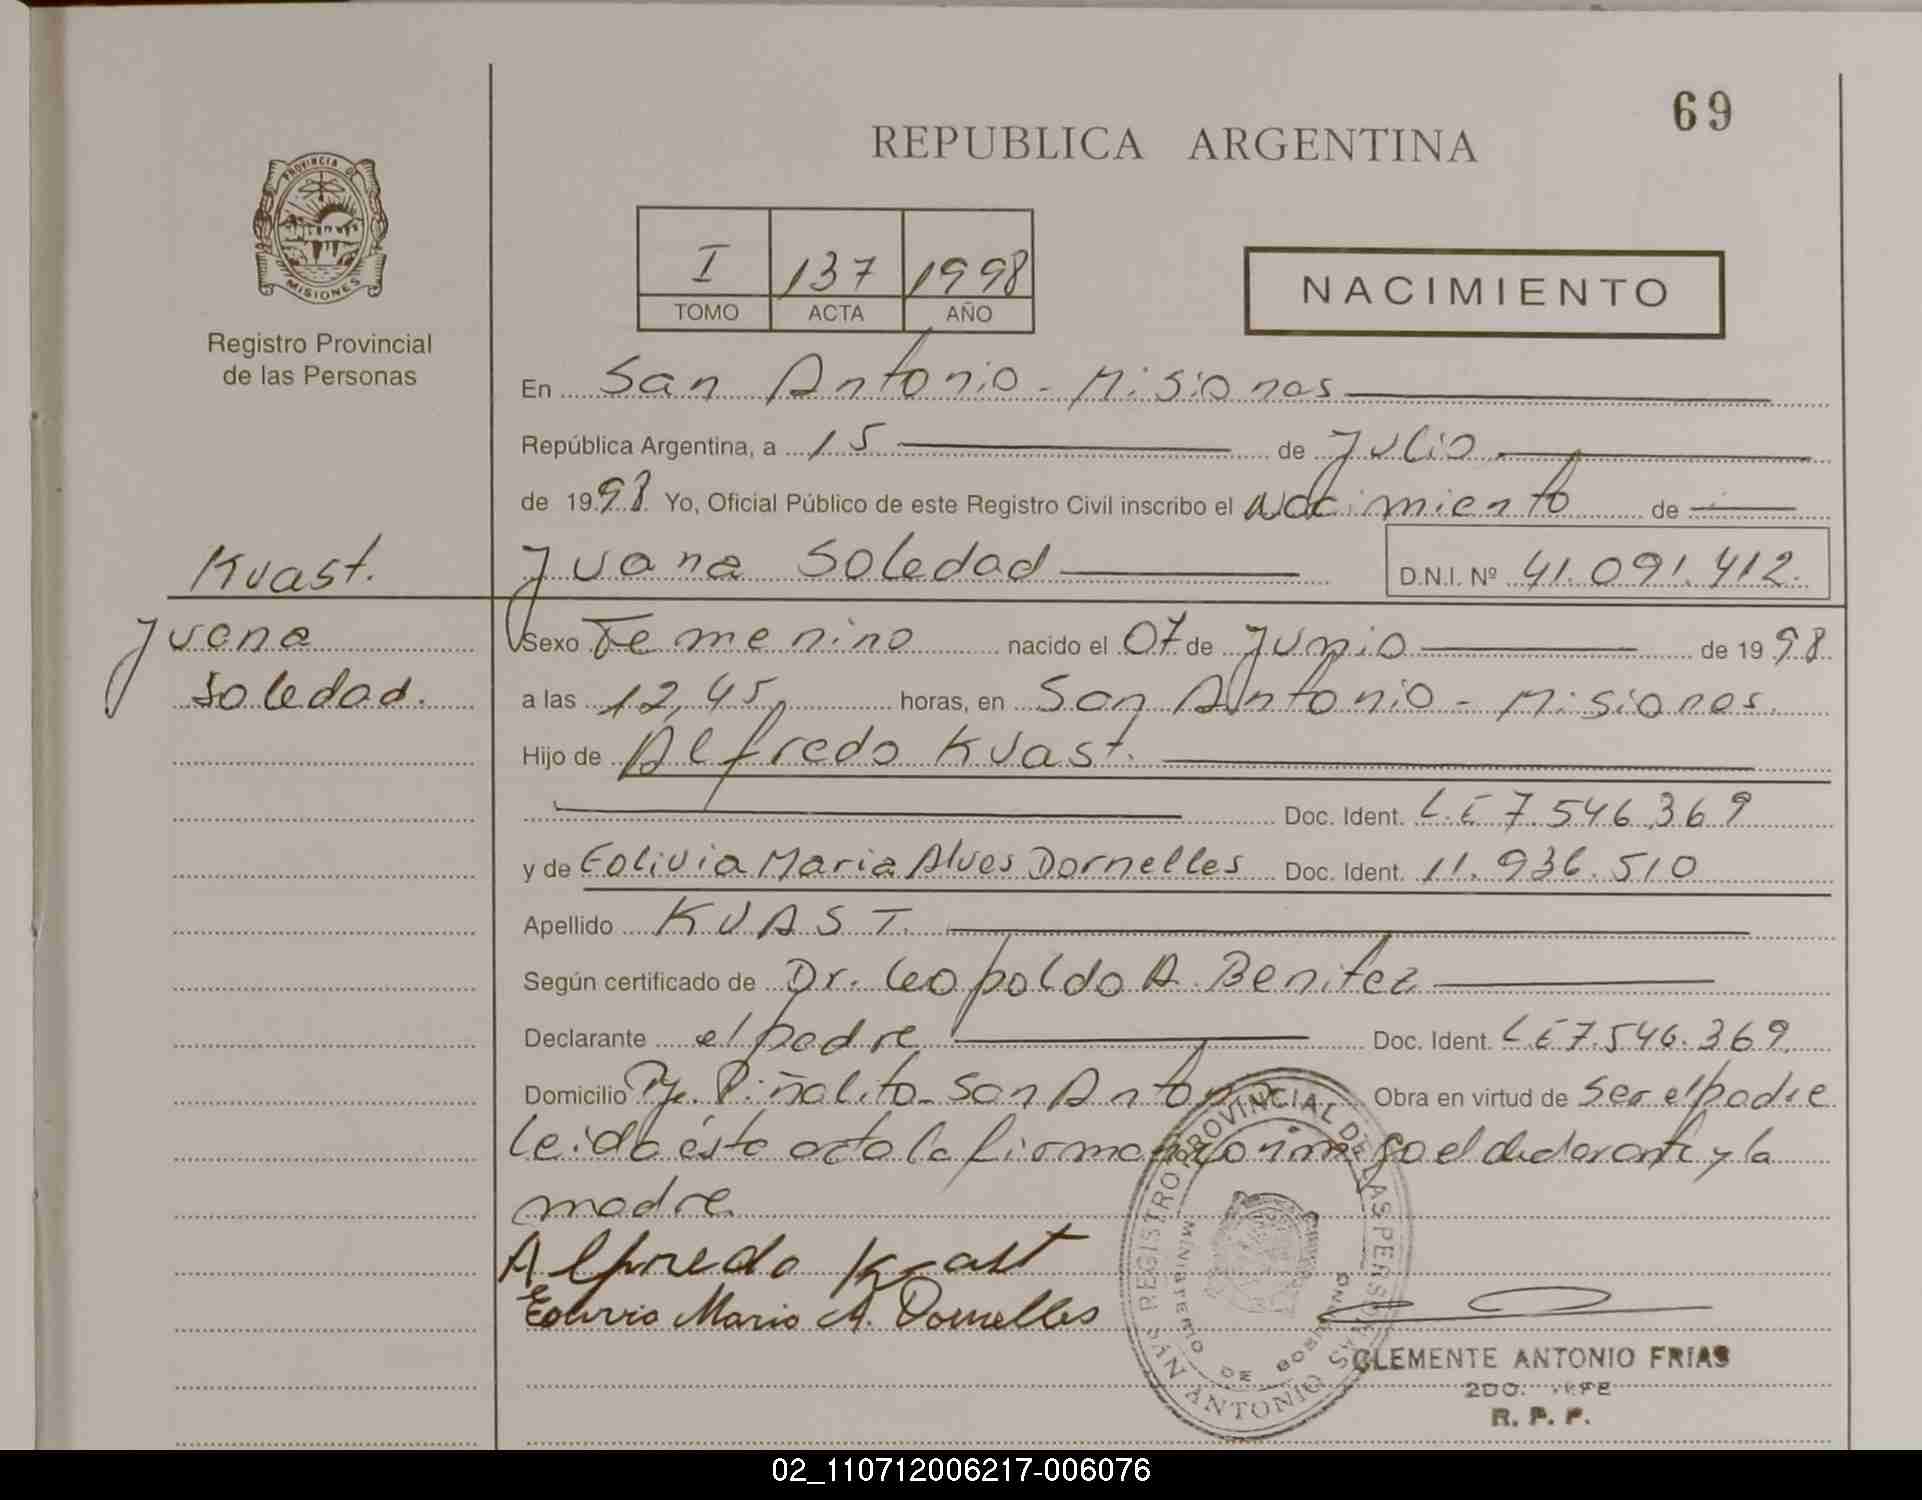 69
REPUBLICA ARGENTINA
PROVINCIA DE
MISIONES
Registro Provincial
de las Personas
I 137 1998
TOMO ACTA AÑO
NACIMIENTO
En San Antonio - Misiones
República Argentina, a 15 de Julio
de 1998 Yo, Oficial Público de este Registro Civil inscribo el nacimiento de
Kuast. Juana Soledad D.N.I. Nº 41.091.412.
Juana Sexo Femenino nacido el 07 de Junio de 1998
Soledad. a las 12,45 horas, en San Antonio - Misiones.
Hijo de Alfredo Kuast.
Doc. Ident. L.E 7.546.369
y de Eolivia Maria Alves Dornelles Doc. Ident. 11.936.510
Apellido KUAST.
Según certificado de Dr. Leopoldo A. Benitez
Declarante el padre Doc. Ident. L.E 7.546.369.
Domicilio Pje. Piñalito - San Antonio Obra en virtud de Ser el padre
leida ésta acta la firman conmigo el declarante y la
madre
Alfredo Kuast
Eolivia Maria A. Dornelles
REGISTRO PROVINCIAL DE LAS PERSONAS
MINISTERIO DE GOBIERNO
SAN ANTONIO
CLEMENTE ANTONIO FRIAS
2DO. JEFE
R. P. P.
02_110712006217-006076